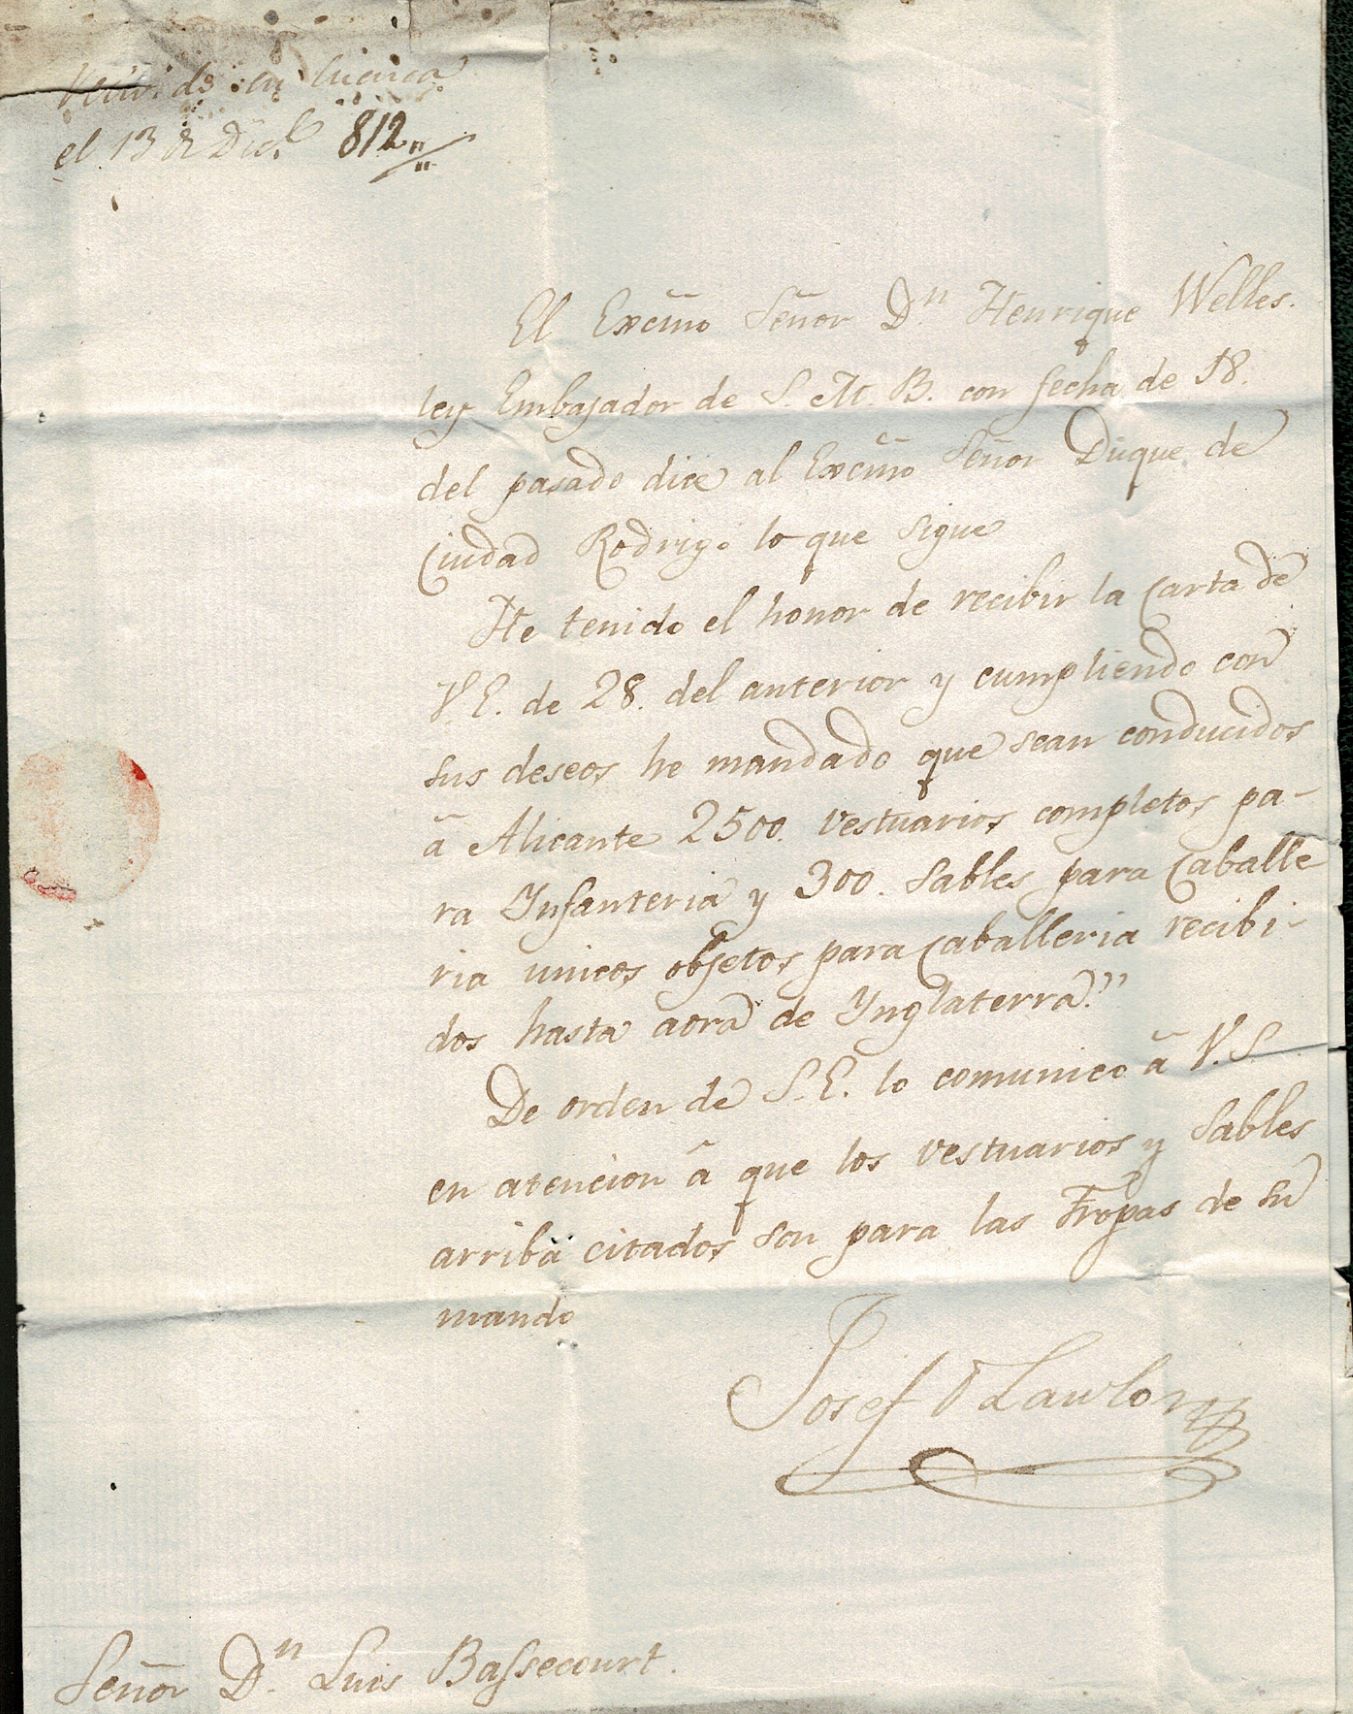 Recivido en Cuenca
el 13 de Dic.e 812
El Excmõ Señor D.n Henrique Welles.
ley Embajador de S. M. B. con fecha de 18.
del pasado dice al Excmõ Señor Duque de
Ciudad Rodrigo lo que sigue
He tenido el honor de recibir la Carta de
V.E. de 28. del anterior y cumpliendo con
sus deseos he mandado que sean conducidos
â Alicante 2500. vestuarios completos pa-
ra Ynfanteria y 300. Sables para Caballe
ria unicos objetos para Caballeria recibi-
dos hasta aora de Ynglaterra."
De orden de S.E. lo comunico â V.S.
en atencion â que los vestuarios y Sables
arriba citados son para las Tropas de su
mando
Josef O Lawlor
Señor D.n Luis Bassecourt.